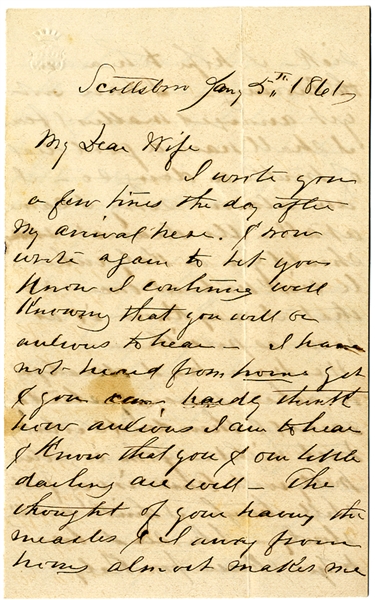 Scottsboro Jany 5th 1861
My Dear Wife
I wrote you
a few lines the day after
my arrival here. I now
write again to let you
know I continue well
Knowing that you will be
anxious to hear - I have
not heard from home yet
& you can hardly think
how anxious I am to hear
& know that you & our little
darling are well - The
thought of your having the
measles & I away from
home almost makes me